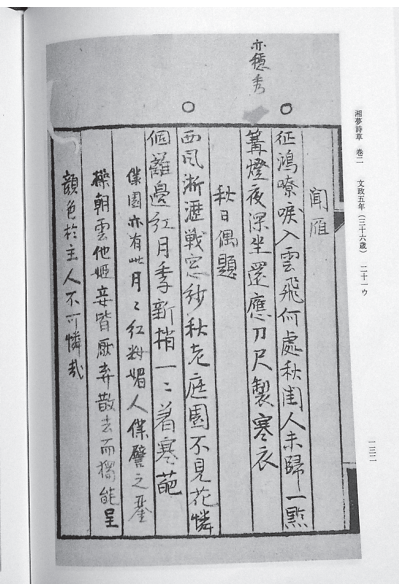 湘夢詩草　巻二　文政五年（三十六歳）　二十一ウ
一三二
亦穏秀
○　○
聞雁
征鴻嘹唳入雲飛何處秋閨人未歸一點
篝燈夜深坐還應刀尺製寒衣
秋日偶題
西風淅瀝戰窓紗秋老庭園不見花憐
個離邊紅月季新梢一ゝ着寒葩
僕園亦有此月ゝ紅粉媚人僕譬之
朝雲他姬妾皆厭弃散去而獨能呈
顔色於主人不可憐哉